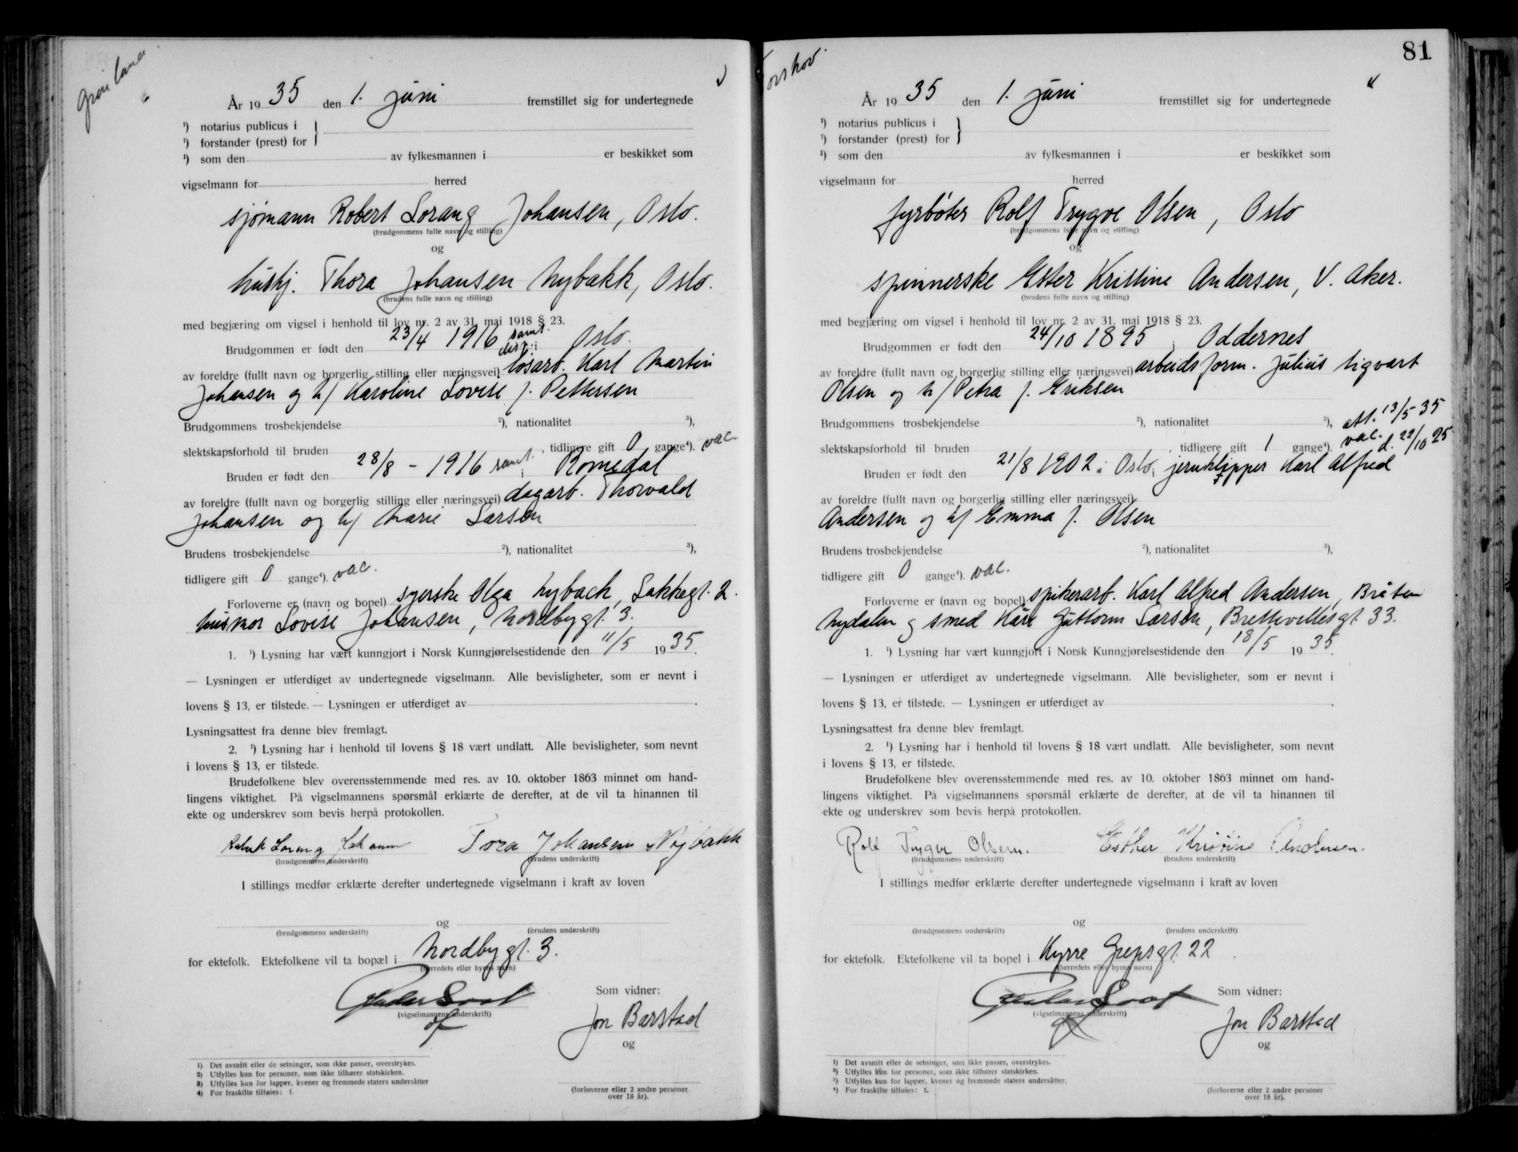 Grønland
År 19 35 den 1. juni fremstillet sig for undertegnede
¹) notarius publicus i
¹) forstander (prest) for
¹) som den av fylkesmannen i er beskikket som
vigselmann for herred
sjømann Robert Lorang Johansen, Oslo.
(brudgommens fulle navn og stilling)
og
hushj. Thora Johansen Nybakk, Oslo.
(brudens fulle navn og stilling)
med begjæring om vigsel i henhold til lov nr. 2 av 31. mai 1918 § 23.
Brudgommen er født den 23/4 1916 samt. disp. i Oslo.
av foreldre (fullt navn og borgerlig stilling eller næringsvei) løsarb. Karl Martin
Johansen og h/ Karoline Lovise f. Pettersen
Brudgommens trosbekjendelse ²), nationalitet ³),
slektskapsforhold til bruden , tidligere gift 0 gange⁴). vac.
Bruden er født den 28/8 - 1916 samt. i Romedal
av foreldre (fullt navn og borgerlig stilling eller næringsvei) dagarb. Thorvald
Johansen og h/ Marie Larsen
Brudens trosbekjendelse ²), nationalitet ³),
tidligere gift 0 gange⁴). vac.
Forloverne er (navn og bopel) syerske Olga Nyback, Lakkegt. 2.
husmor Lovise Johansen, Nordbygt. 3.
1. ¹) Lysning har vært kunngjort i Norsk Kunngjørelsestidende den 11/5 1935.
— Lysningen er utferdiget av undertegnede vigselmann. Alle bevisligheter, som er nevnt i
lovens § 13, er tilstede. — Lysningen er utferdiget av .
Lysningsattest fra denne blev fremlagt.
2. ¹) Lysning har i henhold til lovens § 18 vært undlatt. Alle bevisligheter, som nevnt
i lovens § 13, er tilstede.
Brudefolkene blev overensstemmende med res. av 10. oktober 1863 minnet om hand-
lingens viktighet. På vigselmannens spørsmål erklærte de derefter, at de vil ta hinannen til
ekte og underskrev som bevis herpå protokollen.
Lorang Tora Johansen Nybakk
(brudgommens underskrift) (brudens underskrift)
I stillings medfør erklærte derefter undertegnede vigselmann i kraft av loven
og
(brudgommens underskrift) (brudens underskrift)
for ektefolk. Ektefolkene vil ta bopæl i Nordbygt. 3.
(herredets eller byens navn)
Som vidner:
(vigselmannens underskrift)
Jon Barstad
og
¹) Det avsnitt eller de setninger, som ikke passer, overstrykes.
²) Utfylles kun for personer, som ikke tilhører statskirken.
³) Utfylles kun for lapper, kvener og fremmede staters undersåtter
⁴) For fraskilte tilføies: f.
(forloverne eller 2 andre personer
over 18 år).
Torshov
81
År 19 35 den 1. juni fremstillet sig for undertegnede
¹) notarius publicus i
¹) forstander (prest) for
¹) som den av fylkesmannen i er beskikket som
vigselmann for herred
fyrbøter Rolf Trygve Olsen, Oslo
(brudgommens fulle navn og stilling)
og
spinnerske Ester Kristine Andersen, V. Aker.
(brudens fulle navn og stilling)
med begjæring om vigsel i henhold til lov nr. 2 av 31. mai 1918 § 23.
Brudgommen er født den 24/10 1895 i Oddernes
av foreldre (fullt navn og borgerlig stilling eller næringsvei) arbeidsform. Julius Sigvart
Olsen og h/ Petra f. Eriksen
Brudgommens trosbekjendelse ²), nationalitet ³), att. 13/5 35
slektskapsforhold til bruden , tidligere gift 1 gange⁴). vac. d. 22/10 25
Bruden er født den 21/8 1902 i Oslo, jernklipper Karl Alfred
av foreldre (fullt navn og borgerlig stilling eller næringsvei)
Andersen og h/ Emma f. Olsen
Brudens trosbekjendelse ²), nationalitet ³),
tidligere gift 0 gange⁴). vac.
Forloverne er (navn og bopel) spikerarb. Karl Alfred Andersen, Bråten
Nydalen og smed Kåre Guttorm Larsen, Brettevillesgt. 33.
1. ¹) Lysning har vært kunngjort i Norsk Kunngjørelsestidende den 18/5 1935.
— Lysningen er utferdiget av undertegnede vigselmann. Alle bevisligheter, som er nevnt i
lovens § 13, er tilstede. — Lysningen er utferdiget av .
Lysningsattest fra denne blev fremlagt.
2. ¹) Lysning har i henhold til lovens § 18 vært undlatt. Alle bevisligheter, som nevnt
i lovens § 13, er tilstede.
Brudefolkene blev overensstemmende med res. av 10. oktober 1863 minnet om hand-
lingens viktighet. På vigselmannens spørsmål erklærte de derefter, at de vil ta hinannen til
ekte og underskrev som bevis herpå protokollen.
Rolf Trygve Olsen. Esther Kristine Andersen.
(brudgommens underskrift) (brudens underskrift)
I stillings medfør erklærte derefter undertegnede vigselmann i kraft av loven
og
(brudgommens underskrift) (brudens underskrift)
for ektefolk. Ektefolkene vil ta bopel i Kyrre Grepsgt. 22
(herredets eller byens navn)
Som vidner:
(vigselmannens underskrift)
Jon Barstad
og
¹) Det avsnitt eller de setninger, som ikke passer, overstrykes.
²) Utfylles kun for personer, som ikke tilhører statskirken.
³) Utfylles kun for lapper, kvener og fremmede staters undersåtter.
⁴) For fraskilte tilføies: f.
(forloverne eller 2 andre personer
over 18 år).